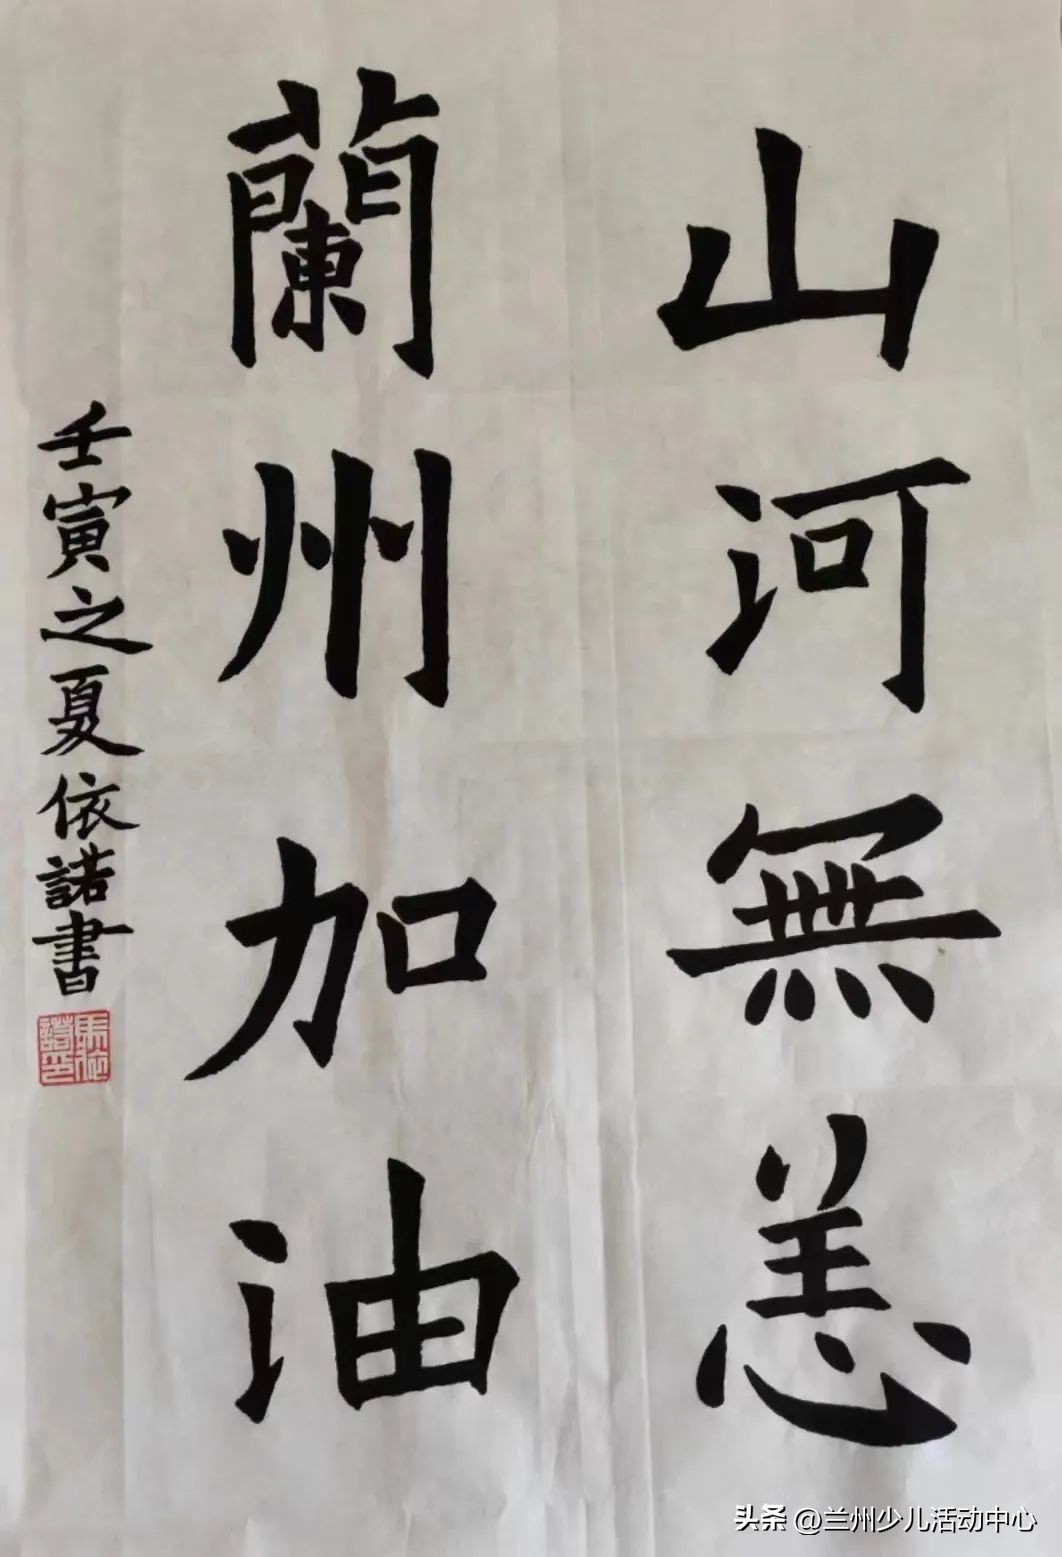 山河無恙
蘭州加油
壬寅之夏依諾書
馬依諾印
头条 @兰州少儿活动中心